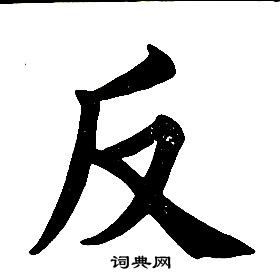 反
词典网